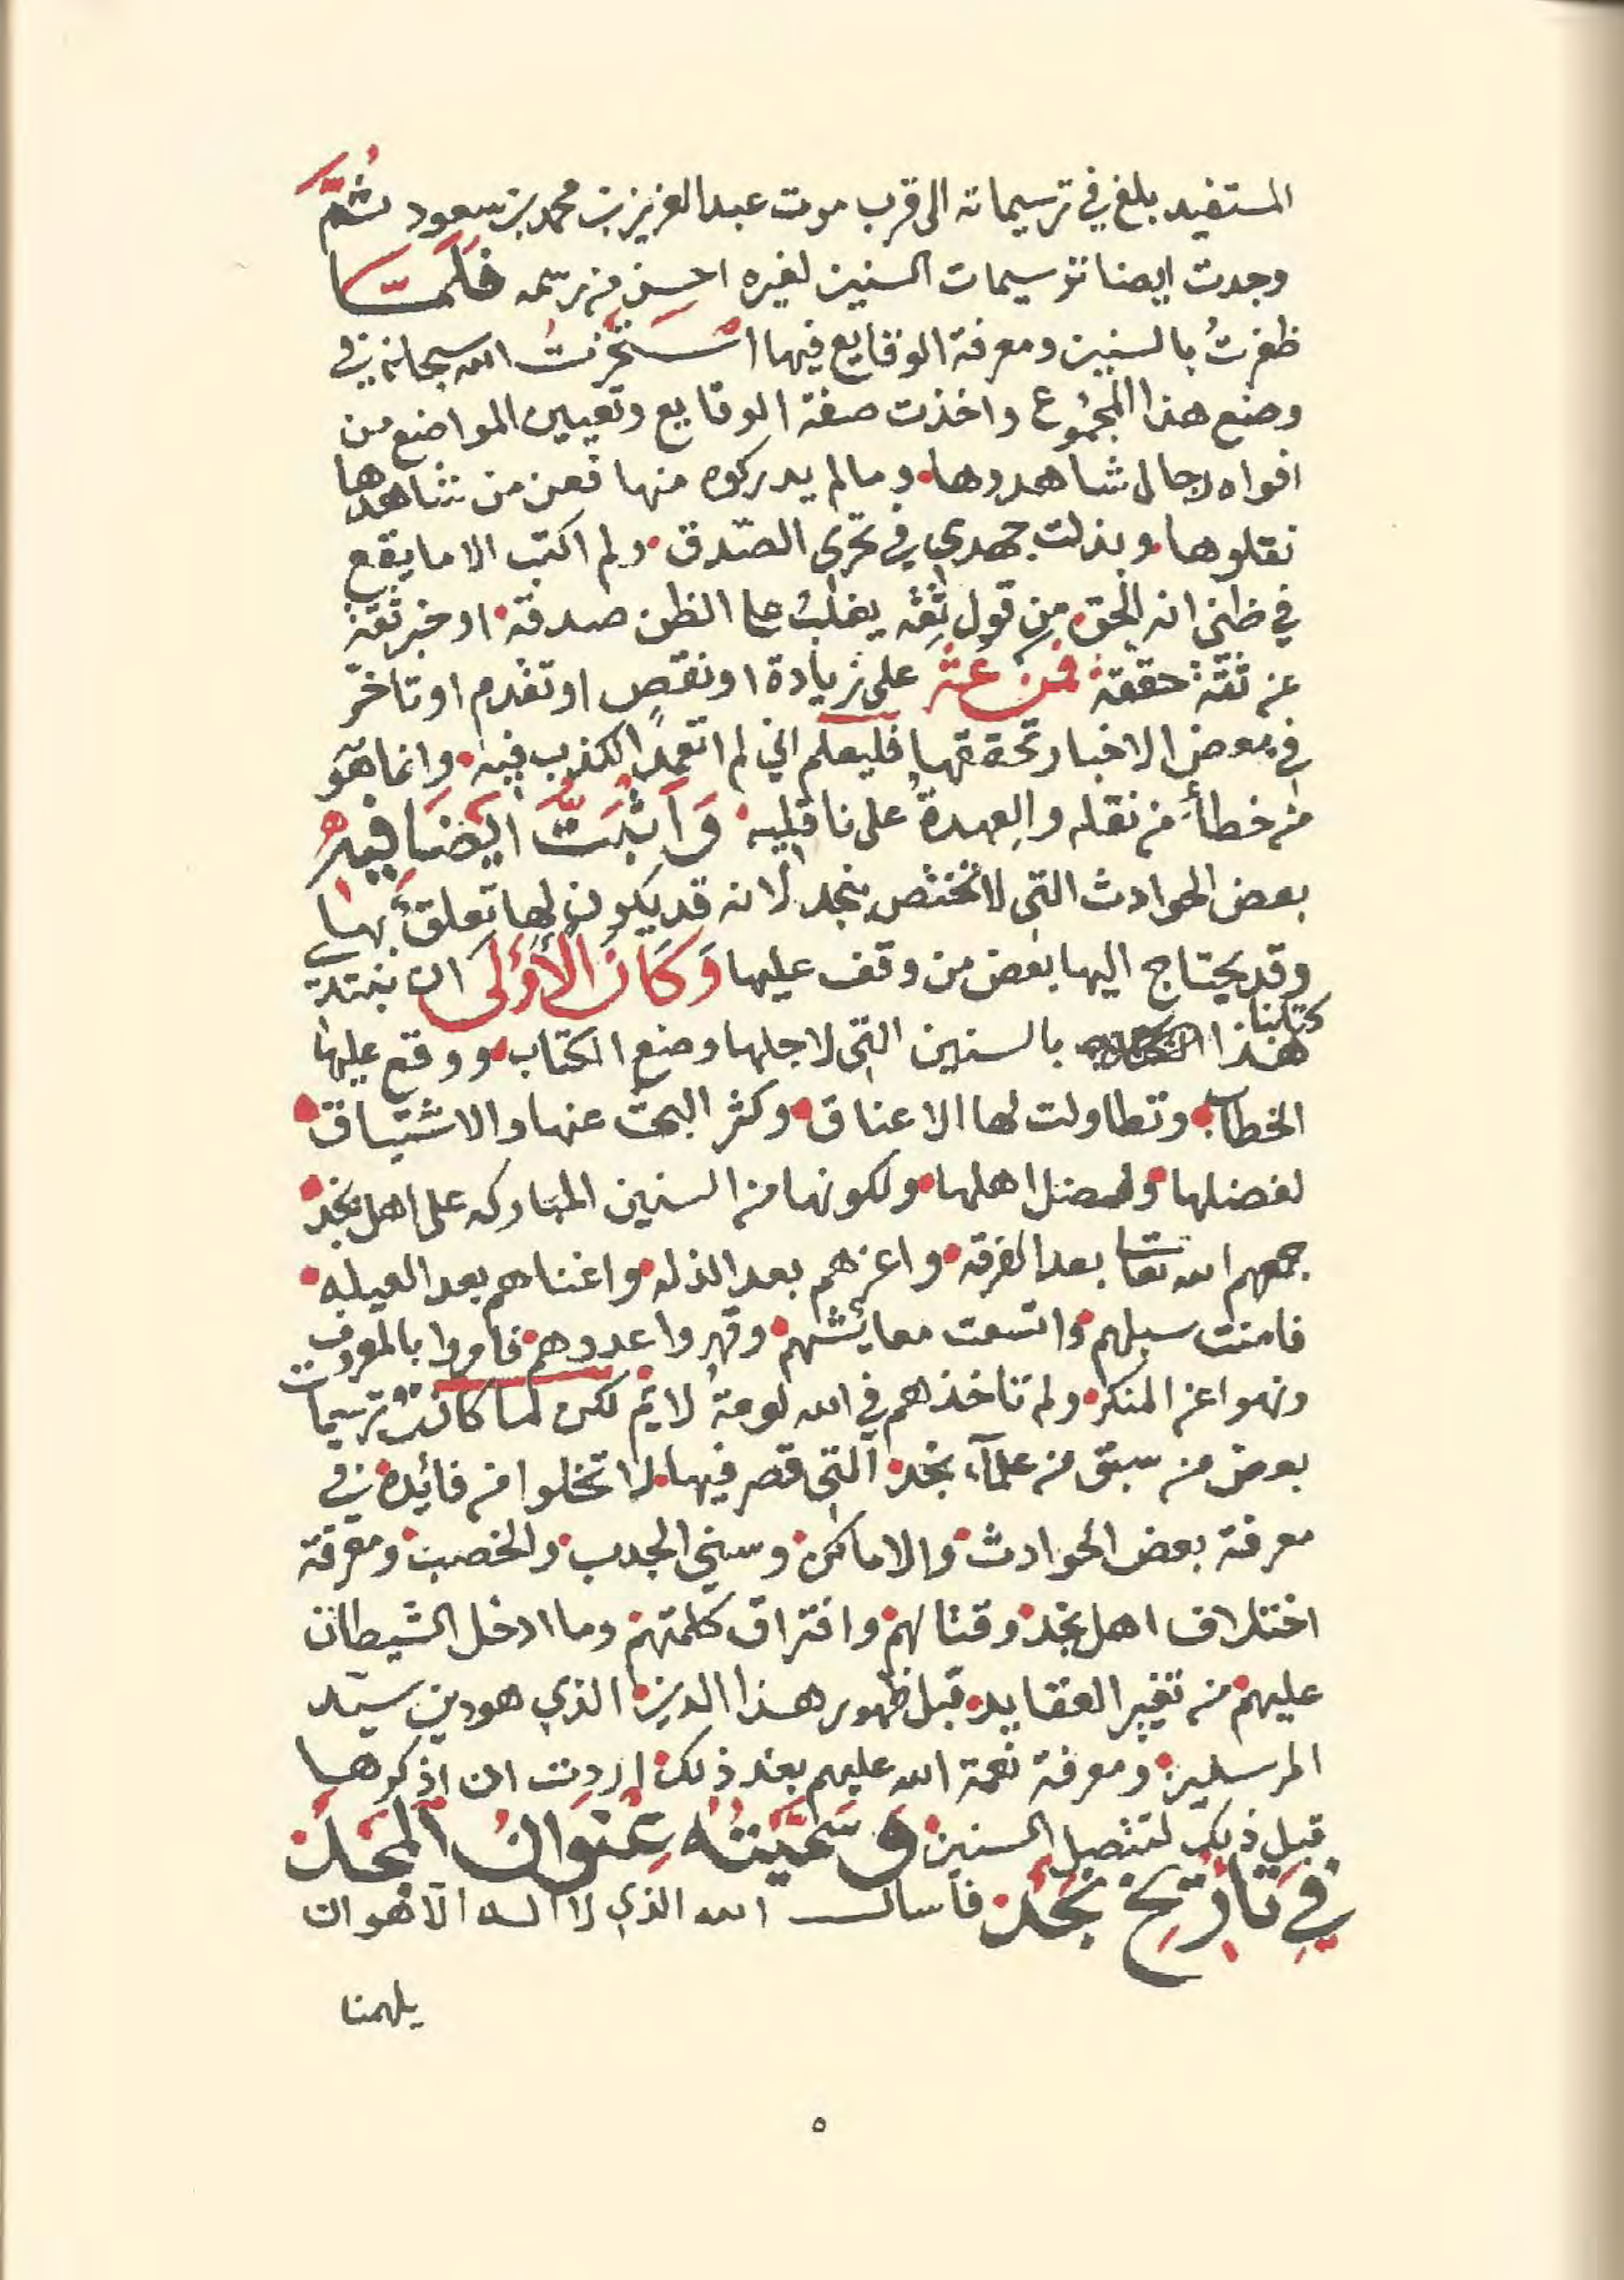 المستفيد بلغ في ترسيماته الى قرب موت عبدالعزيز بن محمد بن سعود ثُمَّ
وجدت ايضا ترسيمات السنين لغيره احسن من رسمه فَلَمَّا
ظفرتُ بالسنين ومعرفة الوقايع فيها اسْتَخَرْتُ الله سبحانه في
وضع هذا المجموع واخذت صفة الوقايع وتعيين المواضع من
افواه رجال شاهدوها. وما لم يدركوه منها فعن من شاهدها
نقلوها. وبذلت جهدي في تحري الصدق. ولم اكتب الا ما يقع
في ظني انه الحق. من قول ثقه يغلب على الظن صدقه. او خبر ثقة
عن ثقة حققه. فمن عثر على زيادة او نقص او تقدم او تاخر
في بعض الاخبار تحققها فليعلم اني لم اتعمد الكذب فيه. وانما هو
من خطأ من نقله والعهدة على ناقليه. وَاَثْبَتُّ اَيْضَا فِيهِ
بعض الحوادث التي لا تختص بنجد لانه قد يكون لها تعلق بها
وقد يحتاج اليها بعض من وقف عليها وَكَانَ الأَوْلَى ان نبتدئ
كتابنا
هذا بالسنين التي لاجلها وضع الكتاب. ووقع عليها
الخطاب. وتطاولت لها الاعناق. وكثر البحث عنها والاشتياق.
لفضلها. ولفضل اهلها. ولكونها من السنين المباركه على اهل نجد.
جمعهم الله تعالى بعد الفرقه. واعزهم بعد الذله. واغناهم بعد العيله.
فامنت سبلهم. واتسعت معائشهم. وقهروا عدوهم. فامروا بالمعروف
ونهوا عن المنكر. ولم تاخذهم في الله لومة لايم. لكن لما كانت ترسيمات
بعض من سبق من علماء نجد. التي قصر فيها. لا تخلوا من فائده. في
معرفة بعض الحوادث. والاماكن. وسني الجدب. والخصب. ومعرفة
اختلاف اهل نجد. وقتالهم. وافتراق كلمتهم. وما ادخل الشيطان
عليهم. من تغير العقايد. قبل ظهور هذا الدين. الذي هو دين سيد
المرسلين. ومعرفة نعمة الله عليهم بعد ذلك. اردت ان اذكرها
قبل ذلك لتتصل السنين. وَسَمَّيْتُهُ عِنْوَانُ المَجْد.
فِي تَأرِيخ نَجْد. فاسال الله الذي لا اله الا هو ان
يلهمنا
٥